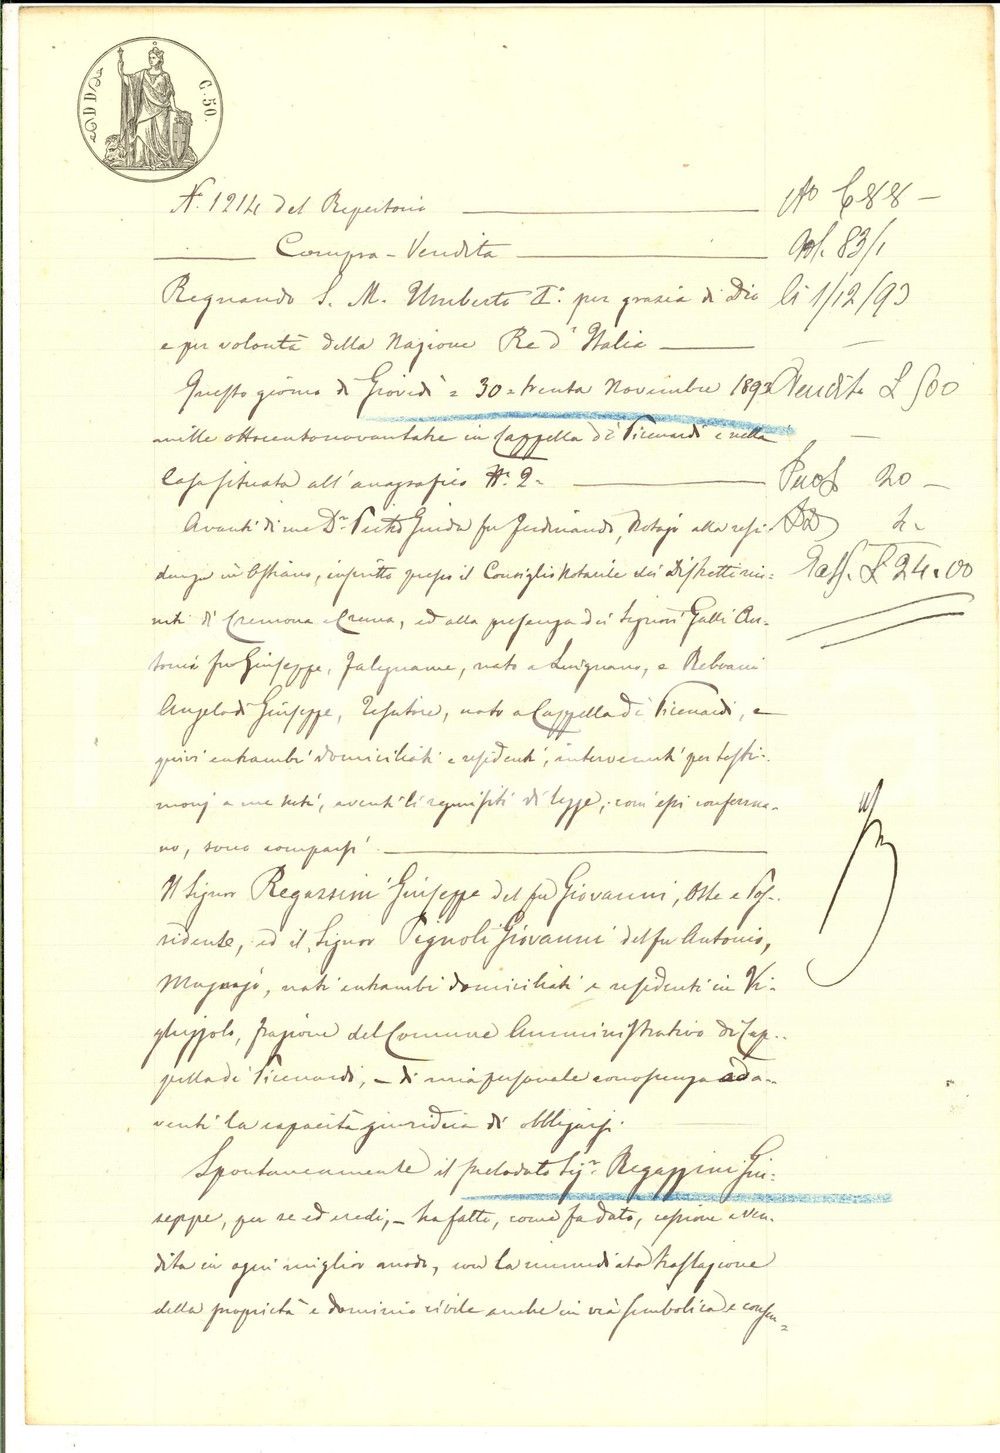 C. 50.
N. 1214 del Repertorio
Compra-Vendita
Regnando S. M. Umberto I.° per grazia di Dio
e per volontà della Nazione Re d'Italia
Questo giorno di Giovedì = 30 = trenta Novembre 1893
mille ottocentonovantatre in Cappella de' Picenardi e nella
Casa situata all'anagrafico N. 2=
Avanti di me Dr. Pietro Guida fu Ferdinando, Notajo alla resi-
denza in Ostiano, inscritto presso il Consiglio Notarile dei Distretti riu=
niti di Cremona e Crema, ed alla presenza dei Signori Galli An-
tonio fu Giuseppe, Falegname, nato a Luignano, e Rebvani
Angelo di Giuseppe, Tessitore, nato a Cappella de' Picenardi, e
quivi entrambi domiciliati e residenti, intervenuti per testi-
monj a me noti, aventi li requisiti di legge, com'essi conferma-
no, sono comparsi
Il Signor Regazzini Giuseppe del fu Giovanni, Oste e Pos-
sidente, ed il Signor Pignoli Giovanni del fu Antonio,
Mugnajo, nati entrambi domiciliati e residenti in Vi-
ghizzolo, frazione del Comune Amministrativo di Cap-
pella de' Picenardi, - di mia personale conoscenza ed a-
venti la capacità giuridica di obbligarsi.
Spontaneamente il prelodato Sigr. Regazzini Giu-
seppe, per se ed eredi, - ha fatto, come fa dato, cessione e ven-
dita in ogni miglior modo, con la immediata traslazione
della proprietà e dominio civile anche in via simbolica e consen=
No 688 -
Vol. 83/1
li 1/12/93
Vendita L 500
20 -
4 -
Tass. L 24.00